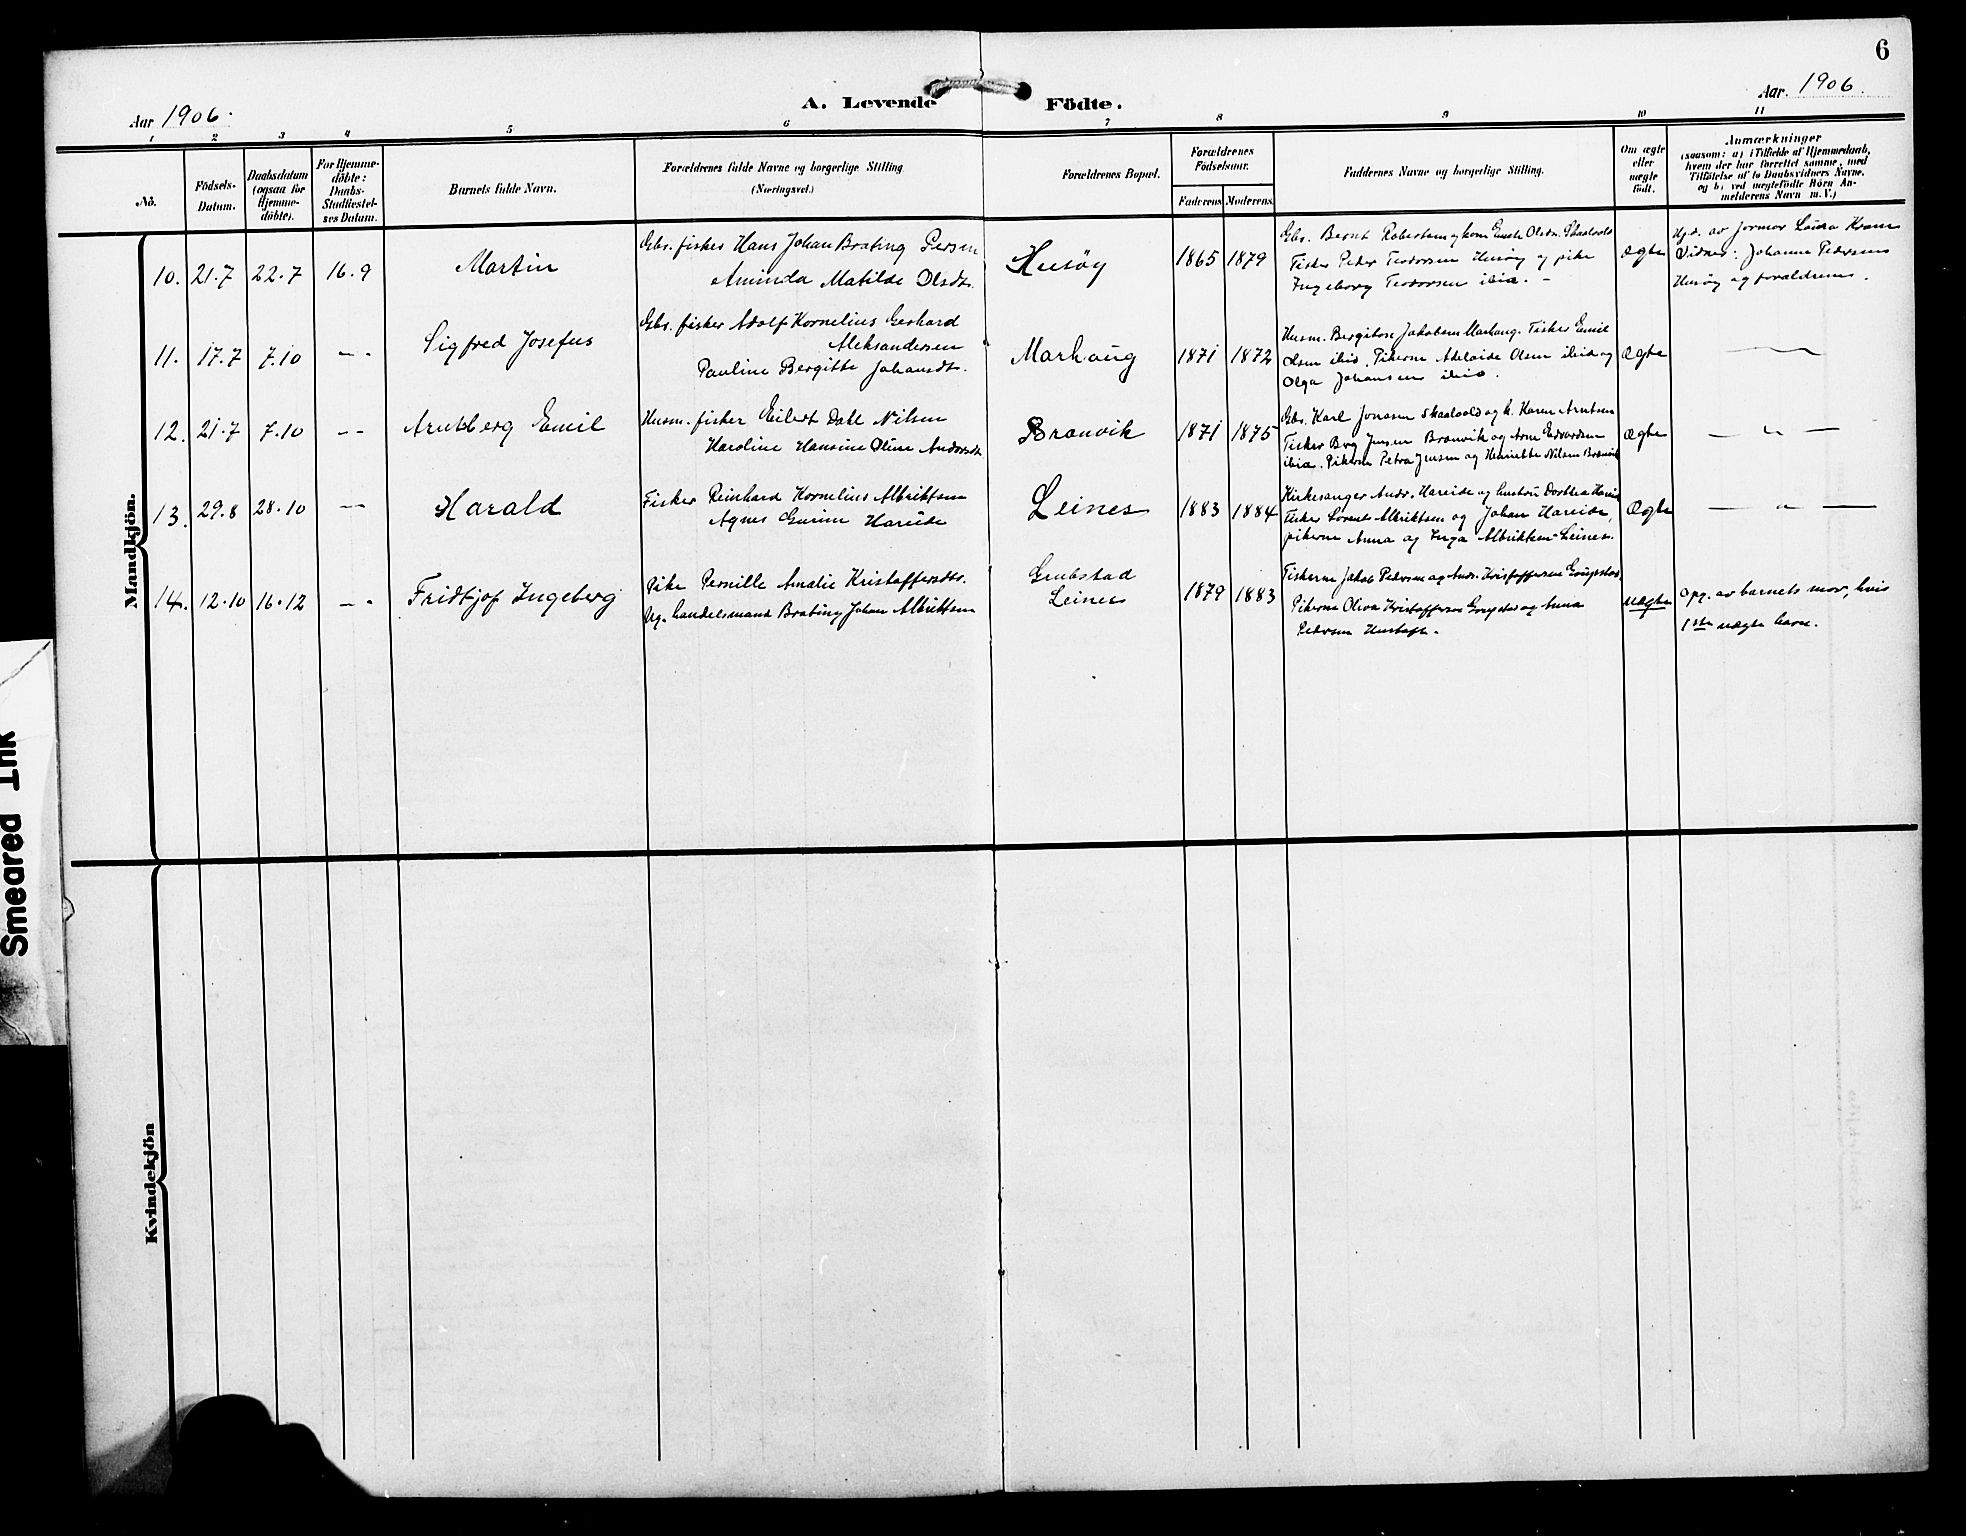 6
Aar 1906.
A. Levende Födte.
Aar. 1906.
1 2 3 4 5 6 7 8 9 10 11
No.
Födsels-
Datum.
Daabsdatum
(ogsaa for
Hjemme-
döbte).
For Hjemme-
döbte:
Daabs-
Stadfæstel-
ses Datum.
Barnets fulde Navn.
Forældrenes fulde Navne og borgerlige Stilling
(Næringsvei.)
Forældrenes Bopæl.
Forældrenes
Födselsaar.
Faderens Moderens
Faddernes Navne og borgerlige Stilling.
Om ægte
eller
uægte
födt.
Anmærkninger
(saasom: a) i Tilfælde af Hjemmedaab,
hvem der har forrettet samme, med
Tilföielse af to Daabsvidners Navne,
og b) ved uægtefödte Börn An-
melderens Navn m. V.)
Mandkjön.
10. 21.7 22.7 16.9 Martin
Gbr. fisker Hans Johan Brating Persen
Aminda Matilde Olsdt.
Husöy 1865 1879
Gbr. Bernt Robertsen og kone Olsdt. Skaalvold
Fisker Peder Teodorsen Husöy og pike
Ingeborg Teodorsen ibid. -
Ægte
Hjd. av formor Lovisa
Vidner: Johanna Pedersen
Husöy og forældrene.
11. 17.7 7.10 -- Sigfred Josefus
Gbr. fisker Adolf Kornelius Gerhard
Aleksandersen
Pauline Bergitte Johansdt.
Marhaug 1871 1872
Husm. Jakobsen Marhaug. Fisker Emil
Olsen ibid. Pikerne Adelaide Olsen ibid og
Olga Johansen ibid.
Ægte —
12. 21.7 7.10 -- Arntberg Emil
Husm. fisker Eilert Dahl Nilsen
Haroline Hansine Oline Andersdt.
Brannvik 1871 1875
Gbr. Karl Jonasen Skaalvold og k. Karen Arntsen
Fisker Jensen Brannvik og Arne Edvardsen
ibid. Pikerne Petra Jensen og Henriette Nilsen
Ægte — " —
13. 29.8 28.10 -- Harald
Fisker Reinhard Kornelius Albriktsen
Agnes Hareide
Leines 1883 1884
Kirkesanger Andr. Hareide og hustru Dorthea
Fisker Lorents Albriktsen og Johan Hareide,
pikerne Anna og Inga Albriktsen Leines.
Ægte — " —
14. 12.10 16.12 -- Fridtjof Ingeberg
Pike Pernille Amalie Kristoffersdt.
Ug. handelsmand Brating Johan Albriktsen
Leines 1879 1883
Fiskerne Jakob Pedersen og Andr. Kristoffersen
Pikerne Oliva Kristoffersen og Anna
Pedersen
uægte
Opg. av barnets mor, hvis
1ste uægte barn.
Kvindekjön
Smeared Ink